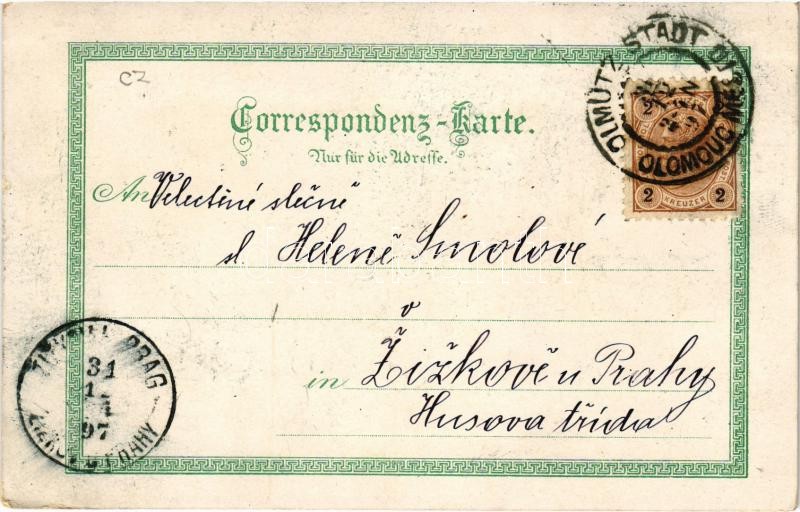 CZ
OLMÜTZ STADT
OLOMOUC MĚSTO
2
2 KREUZER 2
Correspondenz-Karte.
Nur für die Adresse.
An Velectěné slečně
sl. Heleně Smolové
v
in Žižkově u Prahy
Husova třída
PRAG
31
97
PRAHY